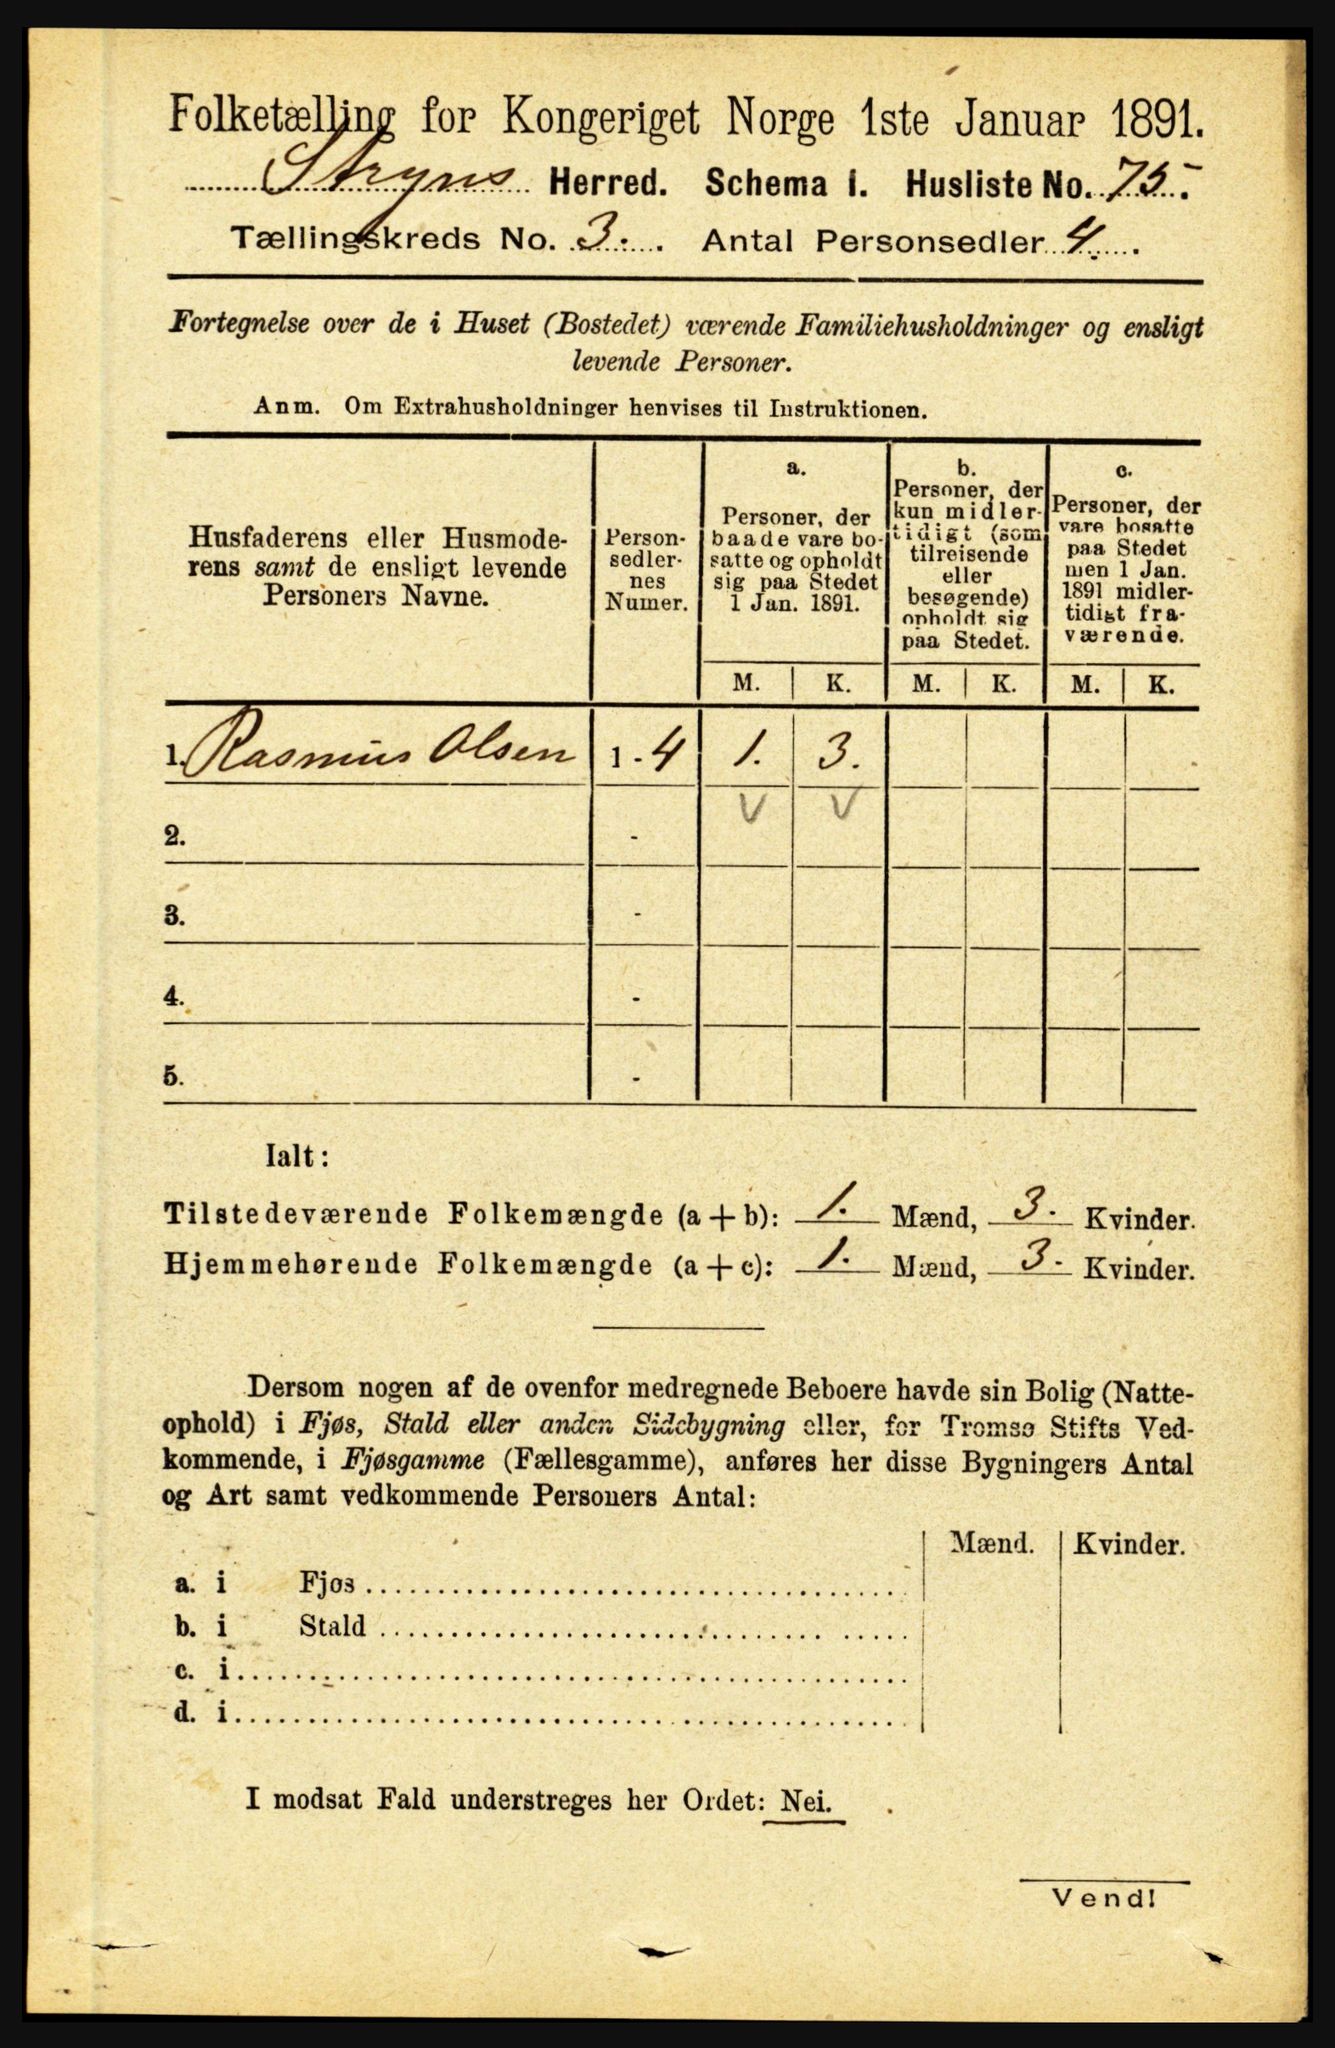 Folketælling for Kongeriget Norge 1ste Januar 1891.
Stryns Herred. Schema 1. Husliste No. 75.
Tællingskreds No. 3. Antal Personsedler 4.
Fortegnelse over de i Huset (Bostedet) værende Familiehusholdninger og ensligt
levende Personer.
Anm. Om Extrahusholdninger henvises til Instruktionen.
Husfaderens eller Husmode-
rens samt de ensligt levende
Personers Navne.
Person-
sedler-
nes
Numer.
a.
Personer, der
baade vare bo-
satte og opholdt
sig paa Stedet
1 Jan. 1891.
b.
Personer, der
kun midler-
tidigt (som
tilreisende
eller
besøgende)
opholdt sig
paa Stedet.
c.
Personer, der
vare bosatte
paa Stedet
men 1 Jan.
1891 midler-
tidigt fra-
værende.
M. K. M. K. M. K.
1. Rasmus Olsen 1 - 4 1. 3.
2. - V V
3. -
4. -
5. -
Ialt:
Tilstedeværende Folkemængde (a + b): 1. Mænd, 3. Kvinder.
Hjemmehørende Folkemængde (a + c): 1. Mænd, 3. Kvinder.
Dersom nogen af de ovenfor medregnede Beboere havde sin Bolig (Natte-
ophold) i Fjøs, Stald eller anden Sidebygning eller, for Tromsø Stifts Ved-
kommende, i Fjøsgamme (Fællesgamme), anføres her disse Bygningers Antal
og Art samt vedkommende Personers Antal:
Mænd. Kvinder.
a. i Fjøs
b. i Stald
c. i
d. i
I modsat Fald understreges her Ordet: Nei.
Vend!